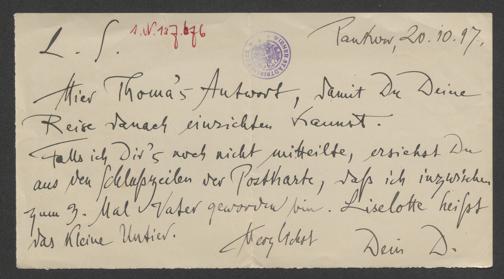 L. S. I.N. 127.676 Pankow, 20.10.97.
Hier Thoma's Antwort, damit Du Deine
Reise danach einrichten kannst.
Falls ich Dir's noch nicht mitteilte, ersiehst Du
aus den Schlußzeilen der Postkarte, daß ich inzwischen
zum 3. Mal Vater geworden bin. Liselotte heißt
das kleine Untier. Herzlichst
Dein D.